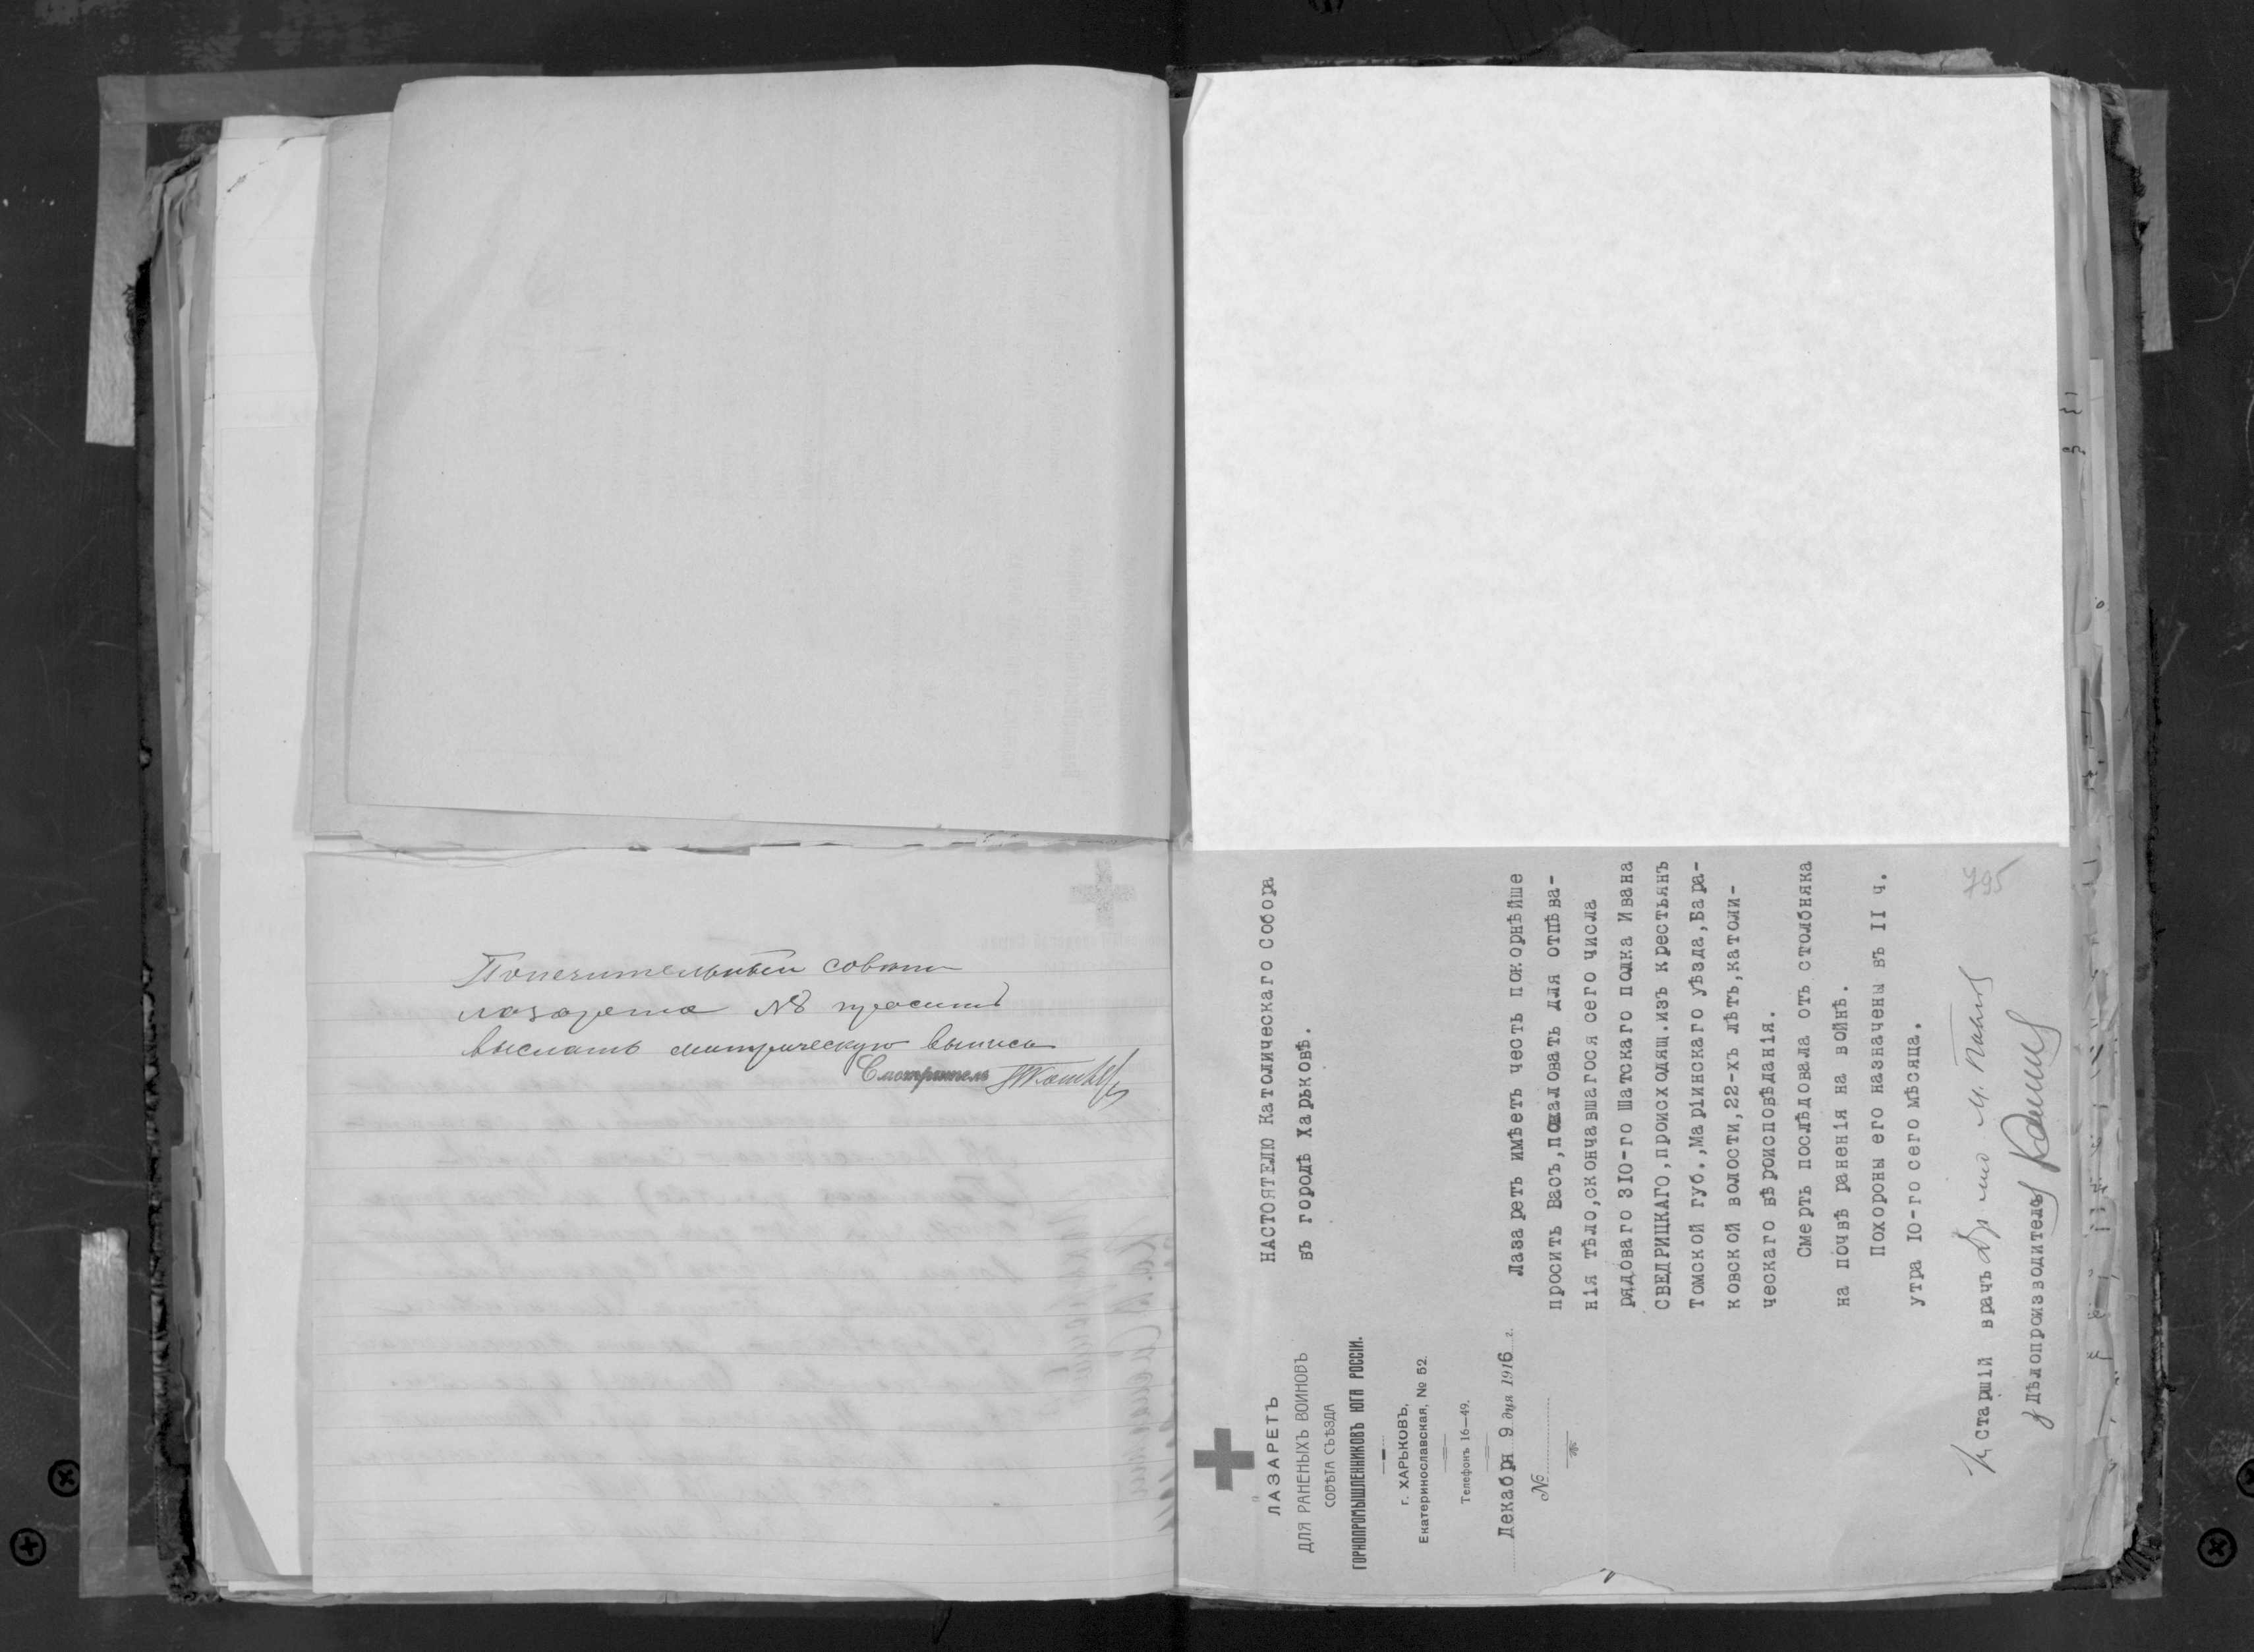 Попечительный совѣтъ
лазарета №8 проситъ
выслать метрическую выпись
Смотритель
ЛАЗАРЕТЪ
ДЛЯ РАНЕНЫХЪ ВОИНОВЪ
СОВѢТА СЪѢЗДА
ГОРНОПРОМЫШЛЕННИКОВЪ ЮГА РОССІИ.
г. ХАРЬКОВЪ,
Екатеринославская, № 52.
Телефонъ 16—49.
Декабря 9 дня 1916 г.
№
НАСТОЯТЕЛЮ Католическаго Собора
въ городѣ Харьковѣ.
Лазаретъ имѣетъ честь покорнѣйше
просить Васъ,пожаловать для отпѣва-
нія тѣло,скончавшагося сего числа
рядоваго 310-го Шатскаго полка Ивана
СВЕДРИЦКАГО,происходящ.изъ крестьянъ
Томской губ.,Маріинскаго уѣзда,Бара-
ковской волости,22-хъ лѣтъ,католи-
ческаго вѣроисповѣданія.
Смерть послѣдовала отъ столбняка
на почвѣ раненія на войнѣ.
Похороны его назначены въ II ч.
утра 10-го сего мѣсяца.
Старшій врачъ
Дѣлопроизводитель
795